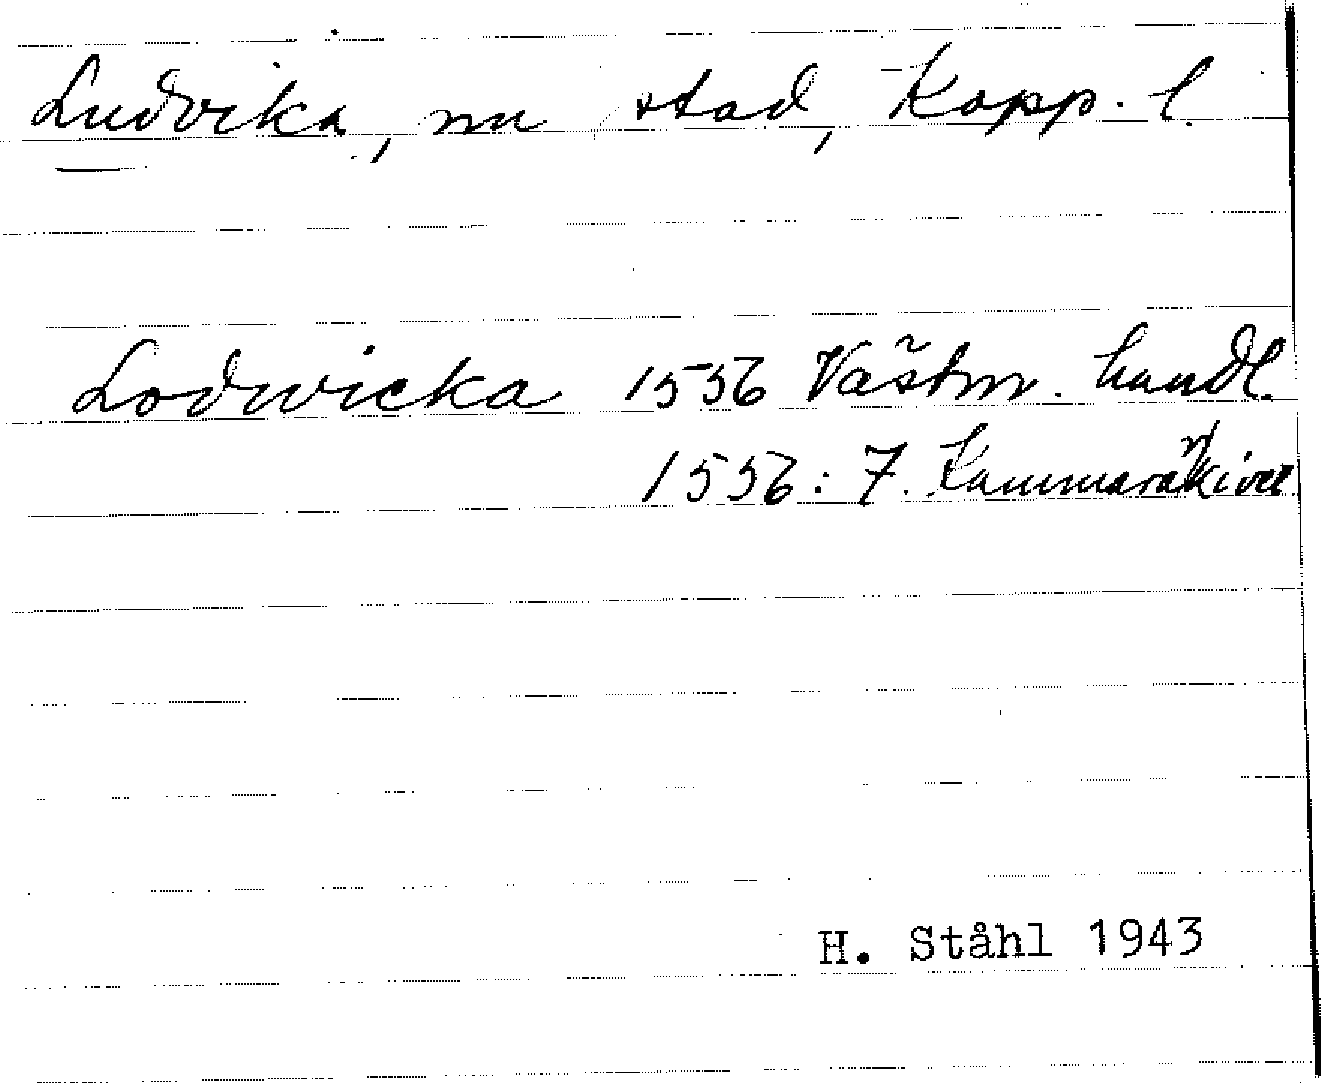 Ludvika, nu stad, Kopp. l.
Lodwicka 1556 Västm. handl.
1556: 7. Kammararkivet
H. Ståhl 1943